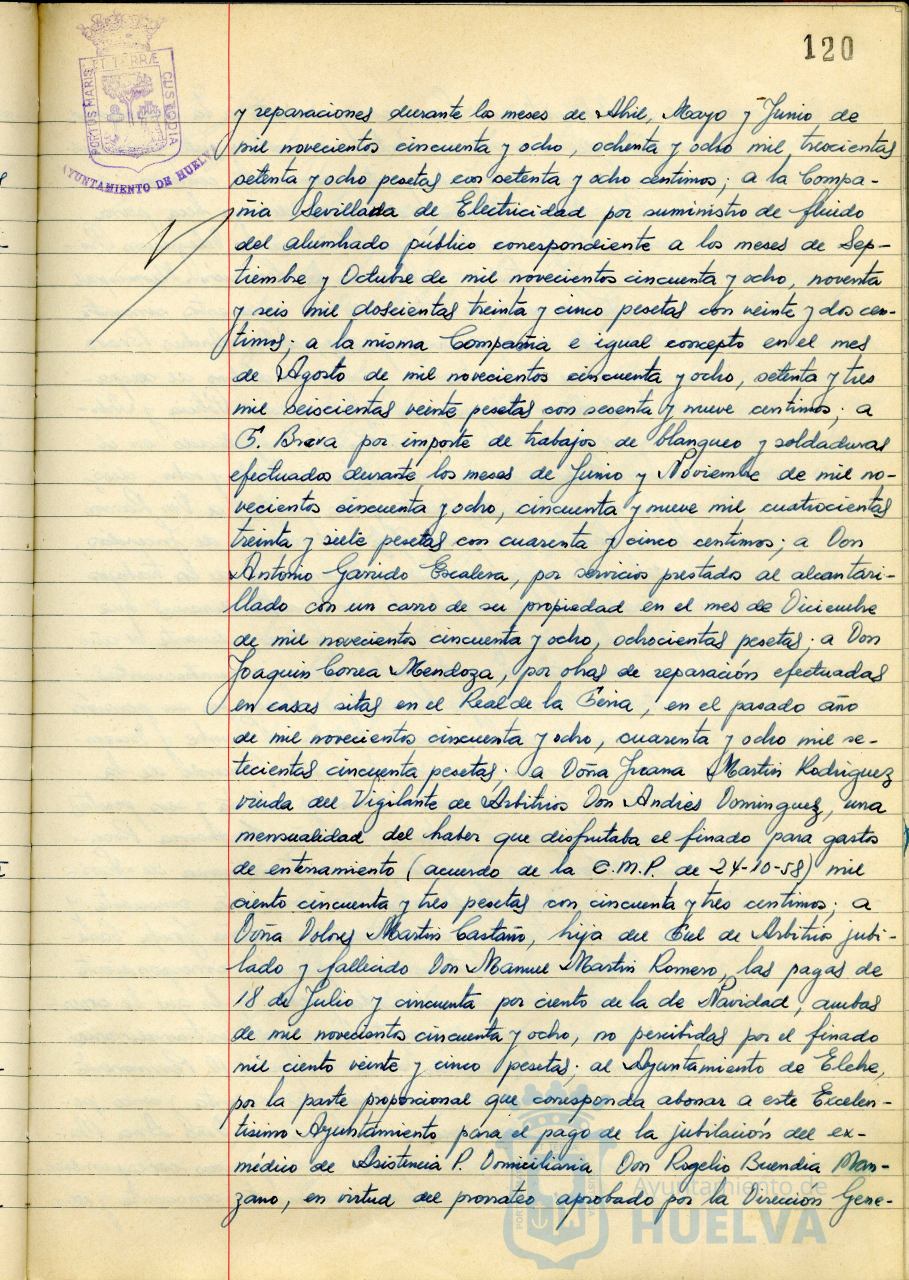 120
PORTUS MARIS ET TERRÆ CUSTODIA
AYUNTAMIENTO DE HUELVA
y reparaciones durante los meses de Abril, Mayo y Junio de
mil novecientos cincuenta y ocho, ochenta y ocho mil trescientas
setenta y ocho pesetas con setenta y ocho centimos; a la Compa-
ñia Sevillana de Electricidad por suministro de fluido
del alumbrado público correspondiente a los meses de Sep-
tiembre y Octubre de mil novecientos cincuenta y ocho, noventa
y seis mil doscientas treinta y cinco pesetas con veinte y dos cen-
timos; a la misma Compañia e igual concepto en el mes
de Agosto de mil novecientos cincuenta y ocho, setenta y tres
mil seiscientas veinte pesetas con sesenta y nueve centimos; a
F. Breva por importe de trabajos de blanqueo y soldaduras
efectuados durante los meses de Junio y Noviembre de mil no-
vecientos cincuenta y ocho, cincuenta y nueve mil cuatrocientas
treinta y siete pesetas con cuarenta y cinco centimos; a Don
Antonio Garrido Escalera, por servicios prestados al alcantari-
llado con un carro de su propiedad en el mes de Diciembre
de mil novecientos cincuenta y ocho, ochocientas pesetas; a Don
Joaquin Correa Mendoza, por obras de reparación efectuadas
en casas sitas en el Real de la Feria, en el pasado año
de mil novecientos cincuenta y ocho, cuarenta y ocho mil se-
tecientas cincuenta pesetas; a Doña Juana Martin Rodriguez
viuda del Vigilante de Arbitrios Don Andrés Dominguez, una
mensualidad del haber que disfrutaba el finado para gastos
de enterramiento (acuerdo de la C.M.P. de 24-10-58) mil
ciento cincuenta y tres pesetas con cincuenta y tres centimos; a
Doña Dolores Martin Castaño, hija del Fiel de Arbitrios jubi-
lado y fallecido Don Manuel Martin Romero, las pagas de
18 de Julio y cincuenta por ciento de la de Navidad, ambas
de mil novecientos cincuenta y ocho, no percibidas por el finado
mil ciento veinte y cinco pesetas; al Ayuntamiento de Elche,
por la parte proporcional que corresponda abonar a este Excelen-
tisimo Ayuntamiento para el pago de la jubilación del ex-
médico de Asistencia P. Domiciliaria Don Rogelio Buendia Man-
zano, en virtud del prorrateo aprobado por la Dirección Gene-
Ayuntamiento de
HUELVA